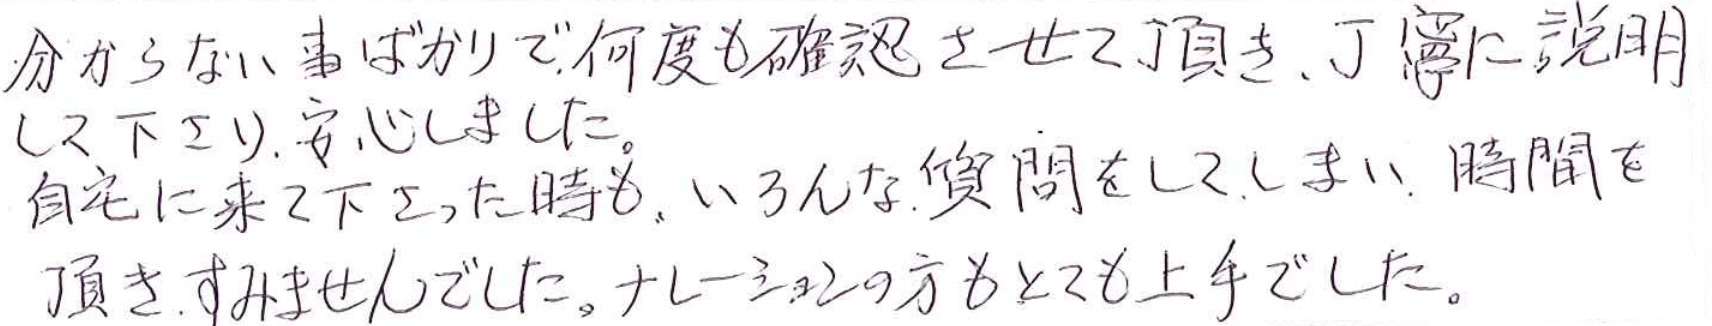 分からない事ばかりで、何度も確認させて頂き、丁寧に説明
して下さり、安心しました。
自宅に来て下さった時も、いろんな質問をしてしまい、時間を
頂き、すみませんでした。ナレーションの方もとても上手でした。